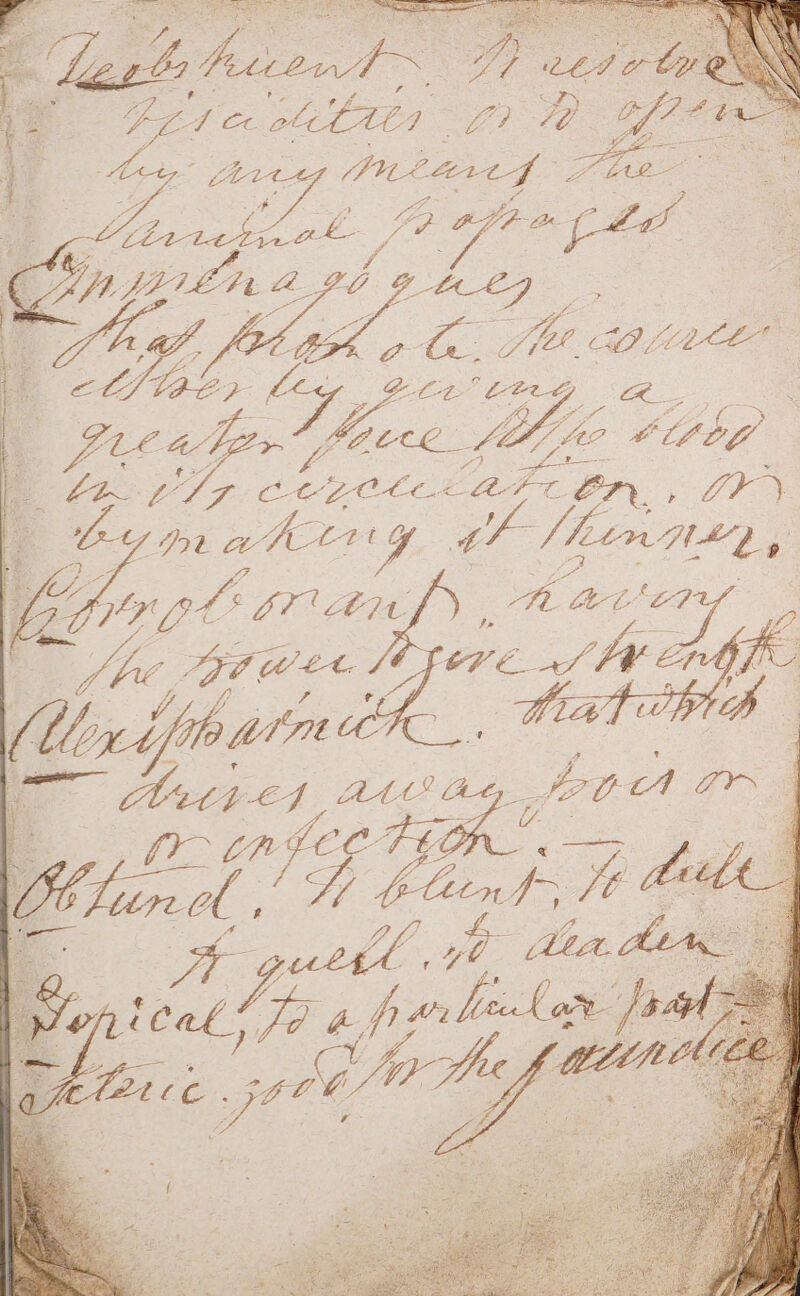 Deobstruent To resolve
viscidities or to open
by any means the
animal passages
Emmenagogues
that promote the course
either by giving a
greater force to the blood
in its circulation, or
by making it thinner.
Corroborant, having
the power to give strength
Alexipharmick. that which
drives away pois or
or infection. —
Obtund. To blunt, to dull
to quell. to deaden
Topical, to a particular part —
Icteric. good for the jaundice